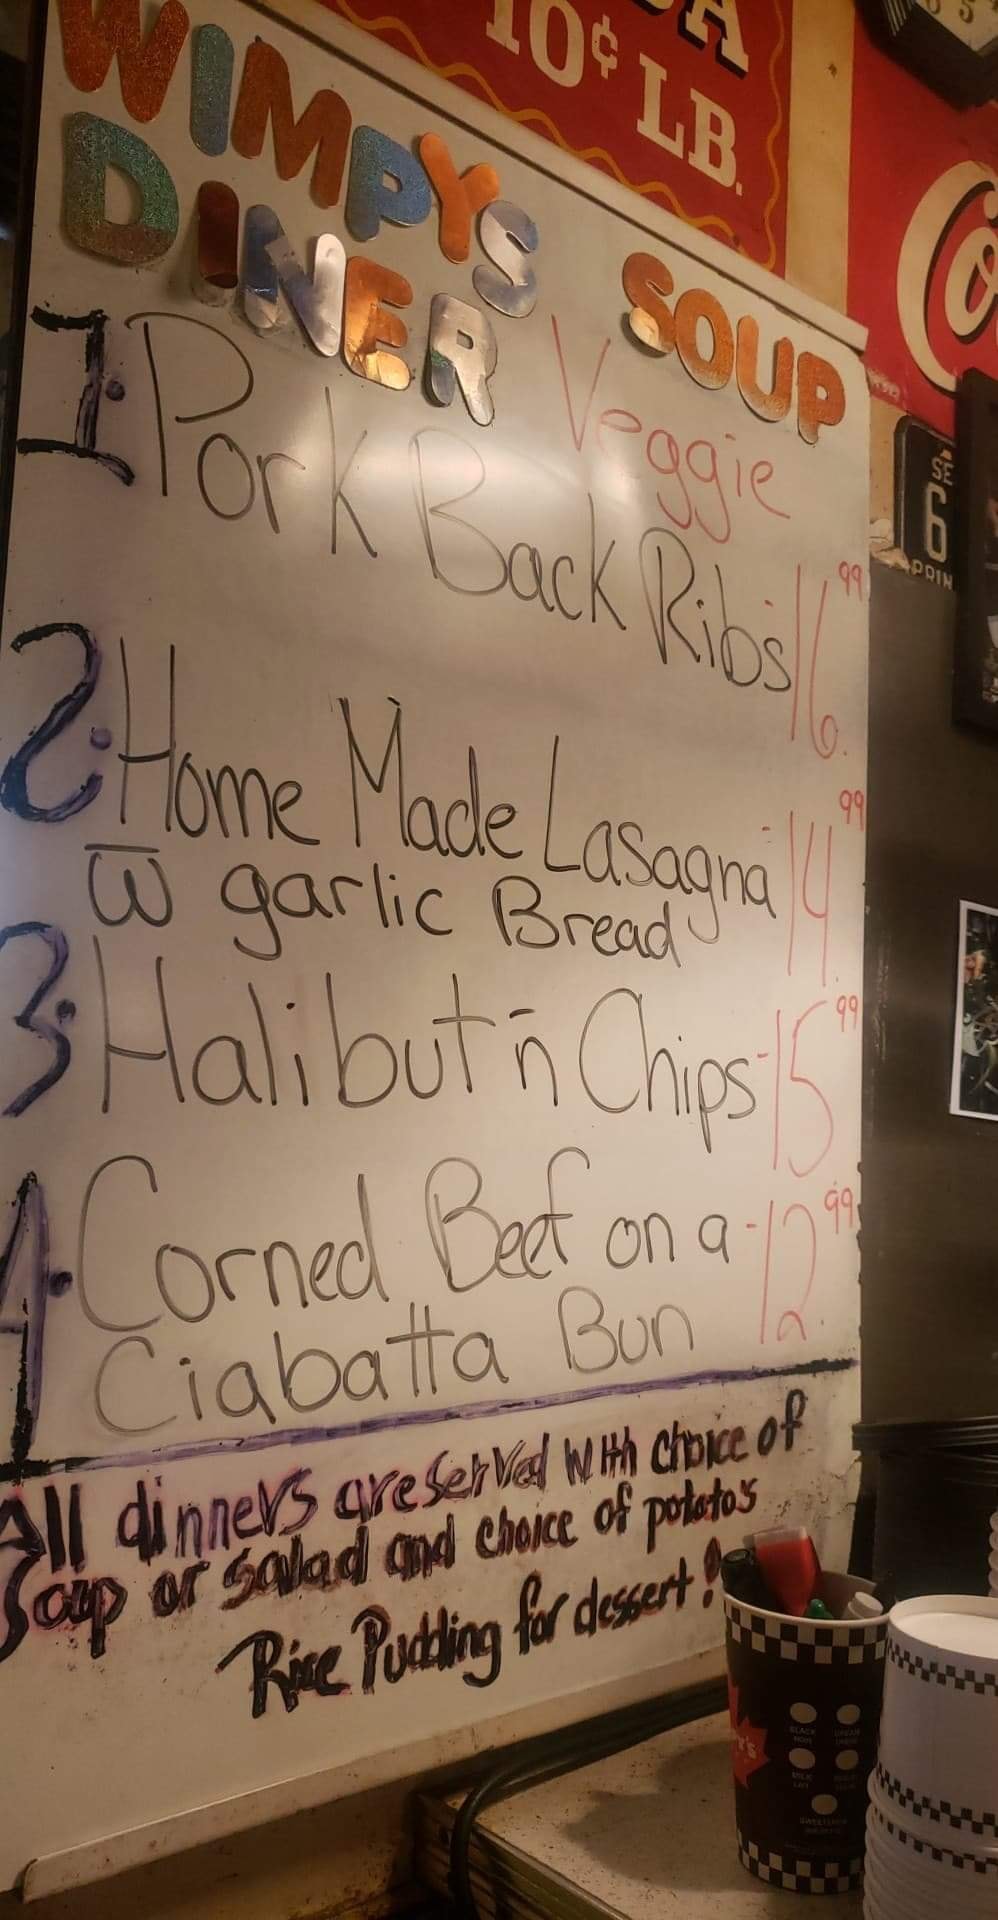 10¢ LB.
WIMPYS
DINER
SOUP
Veggie
1. Pork Back Ribs - 16.99
2. Home Made Lasagna - 14.99
w garlic Bread
3. Halibut n Chips - 15.99
4. Corned Beef on a - 12.99
Ciabatta Bun
All dinners are served with choice of
Soup or salad and choice of potato's
Rice Pudding for dessert!
SE
6